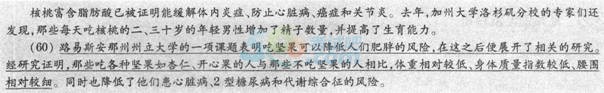 核桃富含脂肪酸已被证明能缓解体内炎症、防止心脏病、癌症和关节炎。去年,加州大学洛杉矶分校的专家们还
发现,那些每天吃核桃的二、三十岁的年轻男性增加了精子数量,并提高了生育能力。
(60) 路易斯安那州州立大学的一项课题表明吃坚果可以降低人们肥胖的风险,在这之后便展开了相关的研究。
经研究证明,那些吃各种坚果如杏仁、开心果的人与那些不吃坚果的人相比,体重相对较低、身体质量指数较低、腰围
相对较细。同时也降低了他们患心脏病、2型糖尿病和代谢综合征的风险。